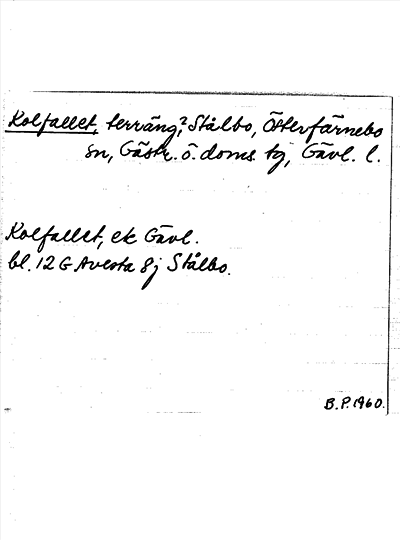 Kolfallet, terräng,? Stålbo, Österfärnebo
sn, Gästr. ö. doms. tg, Gävl. l.
Kolfallet, ek Gävl.
bl. 12 G Avesta 8j Stålbo.
B.P. 1960.